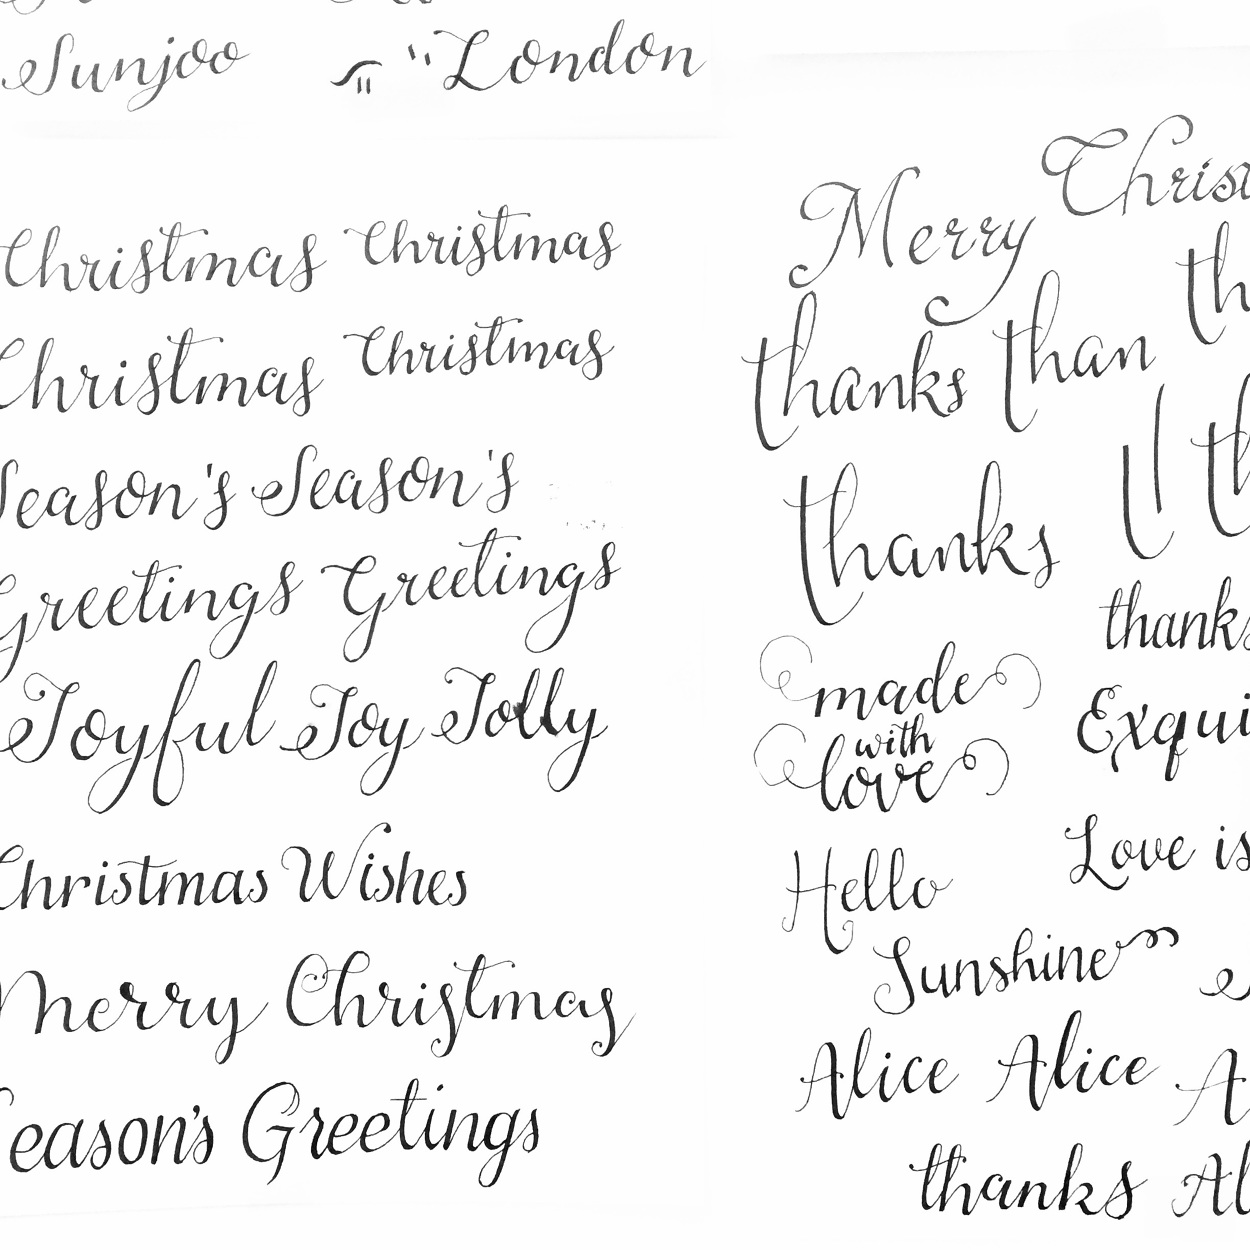 Sunjoo "London
Christmas Christmas
Christmas Christmas
Season's Season's
Greetings Greetings
Joyful Joy Jolly
Christmas Wishes
Merry Christmas
Season's Greetings
Merry Christ
th
thanks than
ll th
thanks
thanks
made
with
love
Exqui
Hello
Love is
Sunshine
Alice Alice A
thanks Al